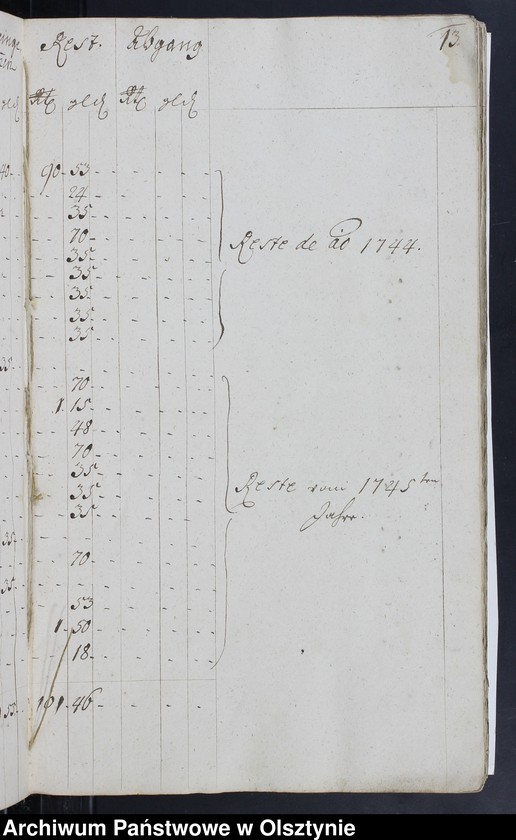 Rest. Abgang 13.
90 - 53 - - - -
24 - - - -
35 - - - -
70 - - - -
35 - - - -
Reste de ao 1744.
35 - - - -
35 - - - -
35 - - - -
35 - - - -
35
70 - - - -
1. 15 - - - -
48 - - - -
70 - - - -
35 - - - -
35 - - - -
35 - - - -
Reste vom 1745ten
Jahre.
35
70 - - - -
35
53 - - - -
1 - 50 - - - -
18 - - - -
191 - 46 - - - -
Archiwum Państwowe w Olsztynie